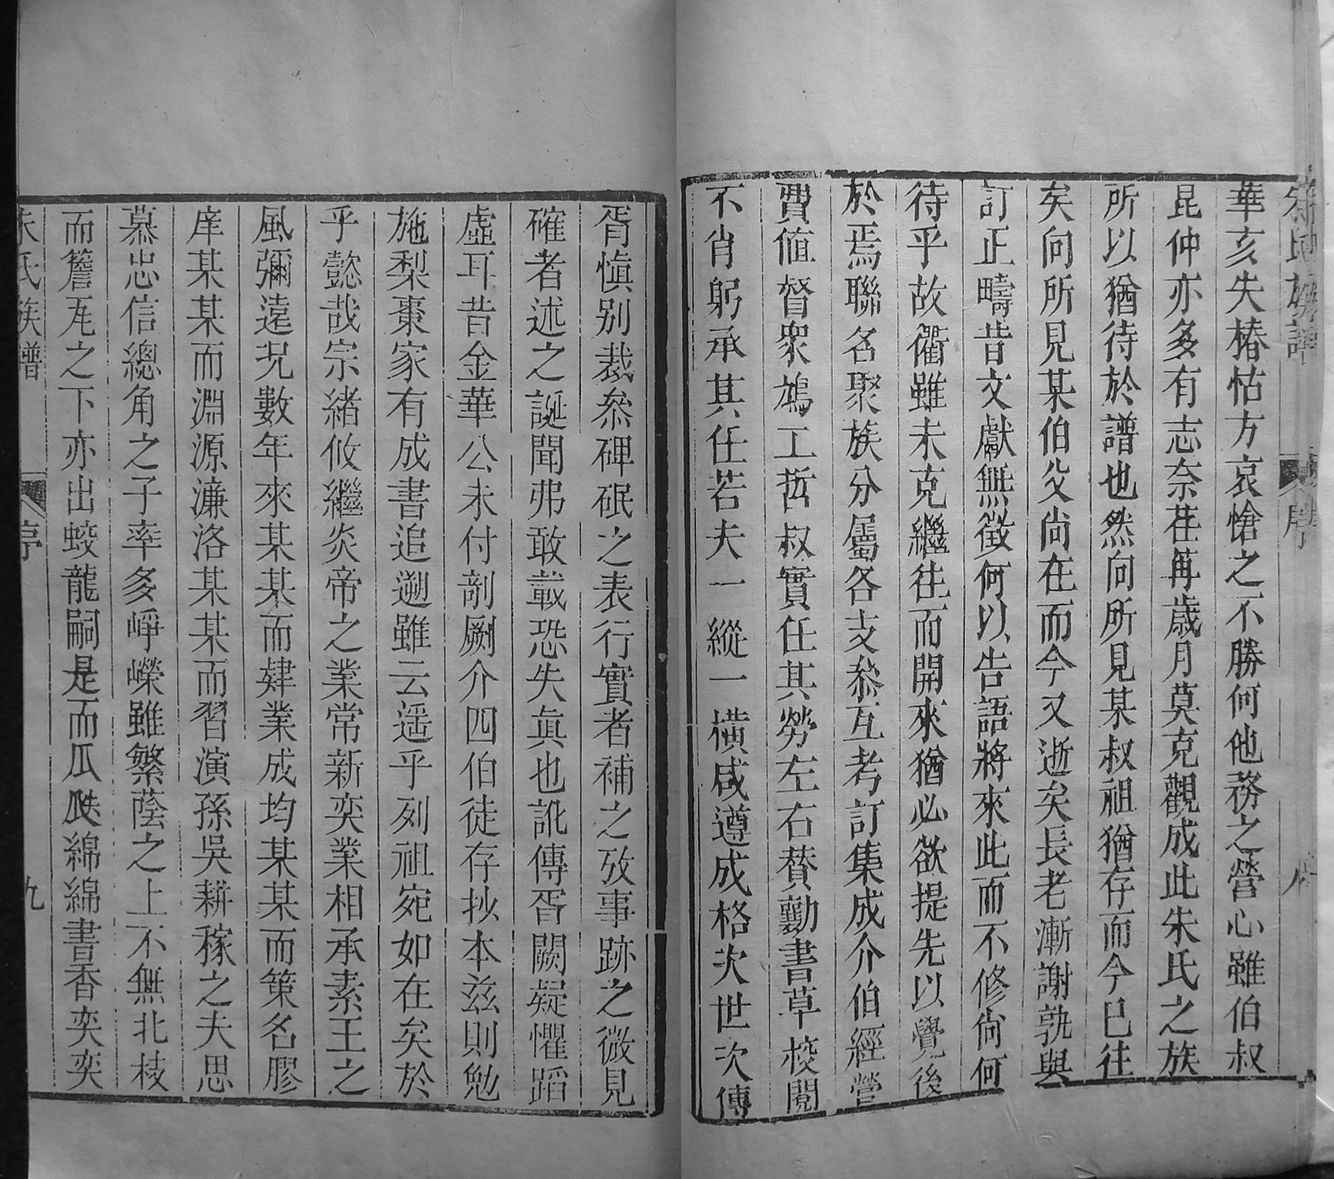 朱氏族譜 序 八
華亥失椿怙方哀愴之不勝何他務之營心雖伯叔
昆仲亦多有志奈荏苒歲月莫克觀成此朱氏之族
所以猶待於譜也然向所見某叔祖猶存而今已往
矣向所見某伯父尚在而今又逝矣長老漸謝孰與
訂正疇昔文獻無徵何以告語將來此而不修尚何
待乎故衢雖未克繼往而開來猶必欲提先以覺後
於焉聯名聚族分屬各支叅互考訂集成介伯經營
費値督衆鳩工哲叔實任其勞左右賛勷書草校閱
不肖躬承其任若夫一縱一橫咸遵成格次世次傳
胥愼别裁叅碑珉之表行實者補之攷事跡之微見
確者述之誕聞弗敢載恐失眞也訛傳胥闕疑懼蹈
虛耳昔金華公未付剞劂介四伯徒存抄本兹則勉
施梨棗家有成書追遡雖云遥乎列祖宛如在矣於
乎懿哉宗緒攸繼炎帝之業常新奕業相承素王之
風彌遠況數年來某某而肄業成均某某而策名膠
庠某某而淵源濂洛某某而習演孫吳耕稼之夫思
慕忠信總角之子率多崢嶸雖繁蔭之上不無北枝
而簷瓦之下亦出蛟龍嗣是而瓜瓞綿綿書香奕奕
朱氏族譜 序 九